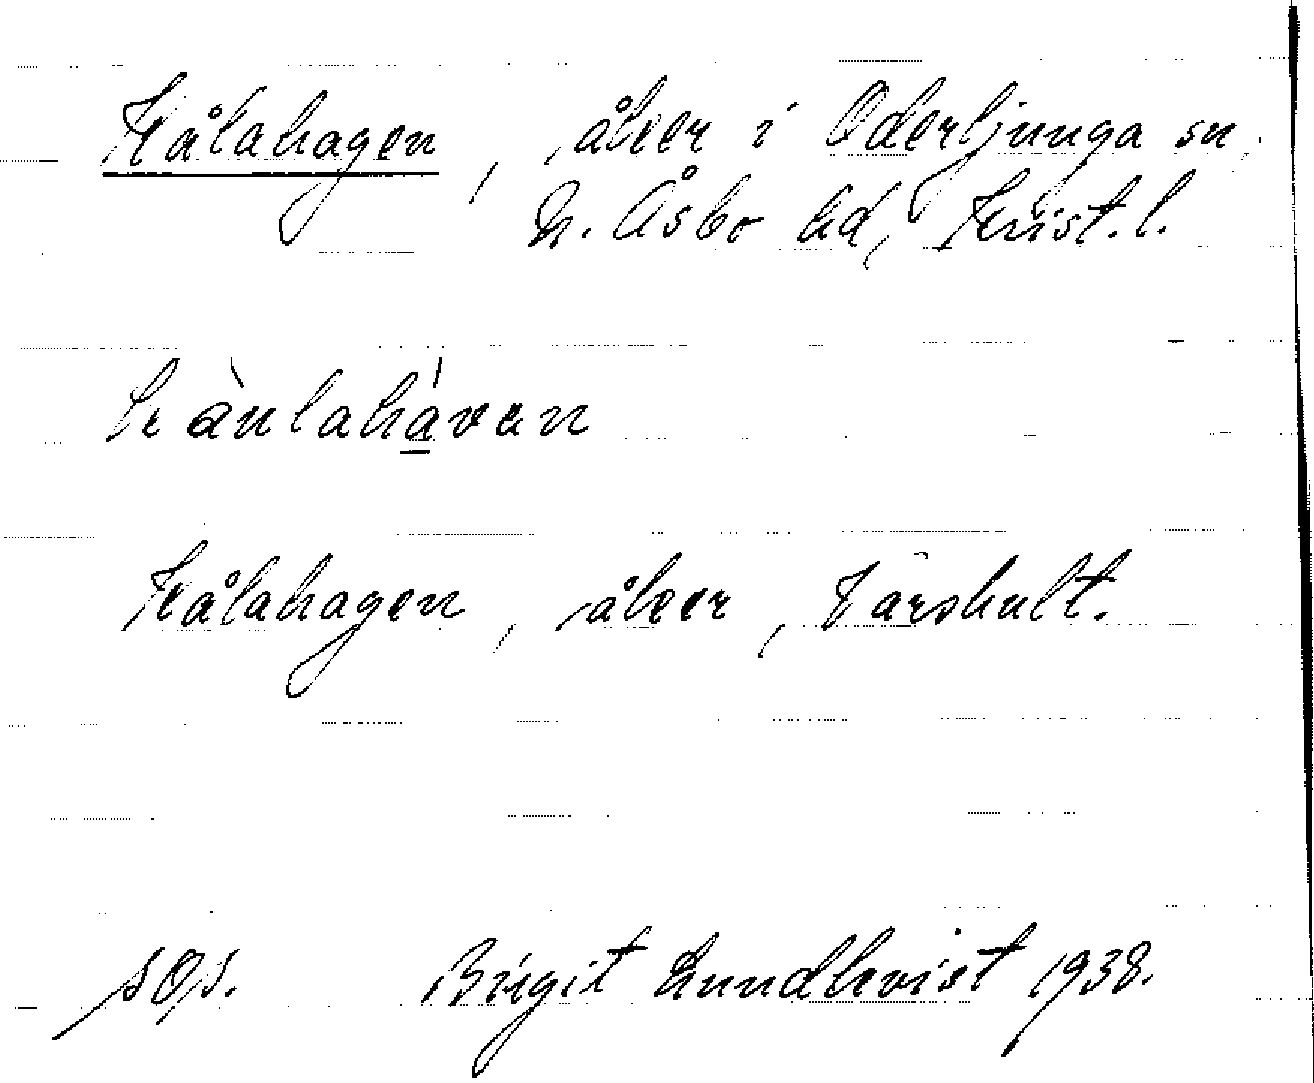 Kålahagen, åker i Oderljunga sn,
N. Åsbo hd, Krist. l.
kàulahávan
Kålahagen, åker, Varshult.
sqs. Birgit Lundkvist 1938.